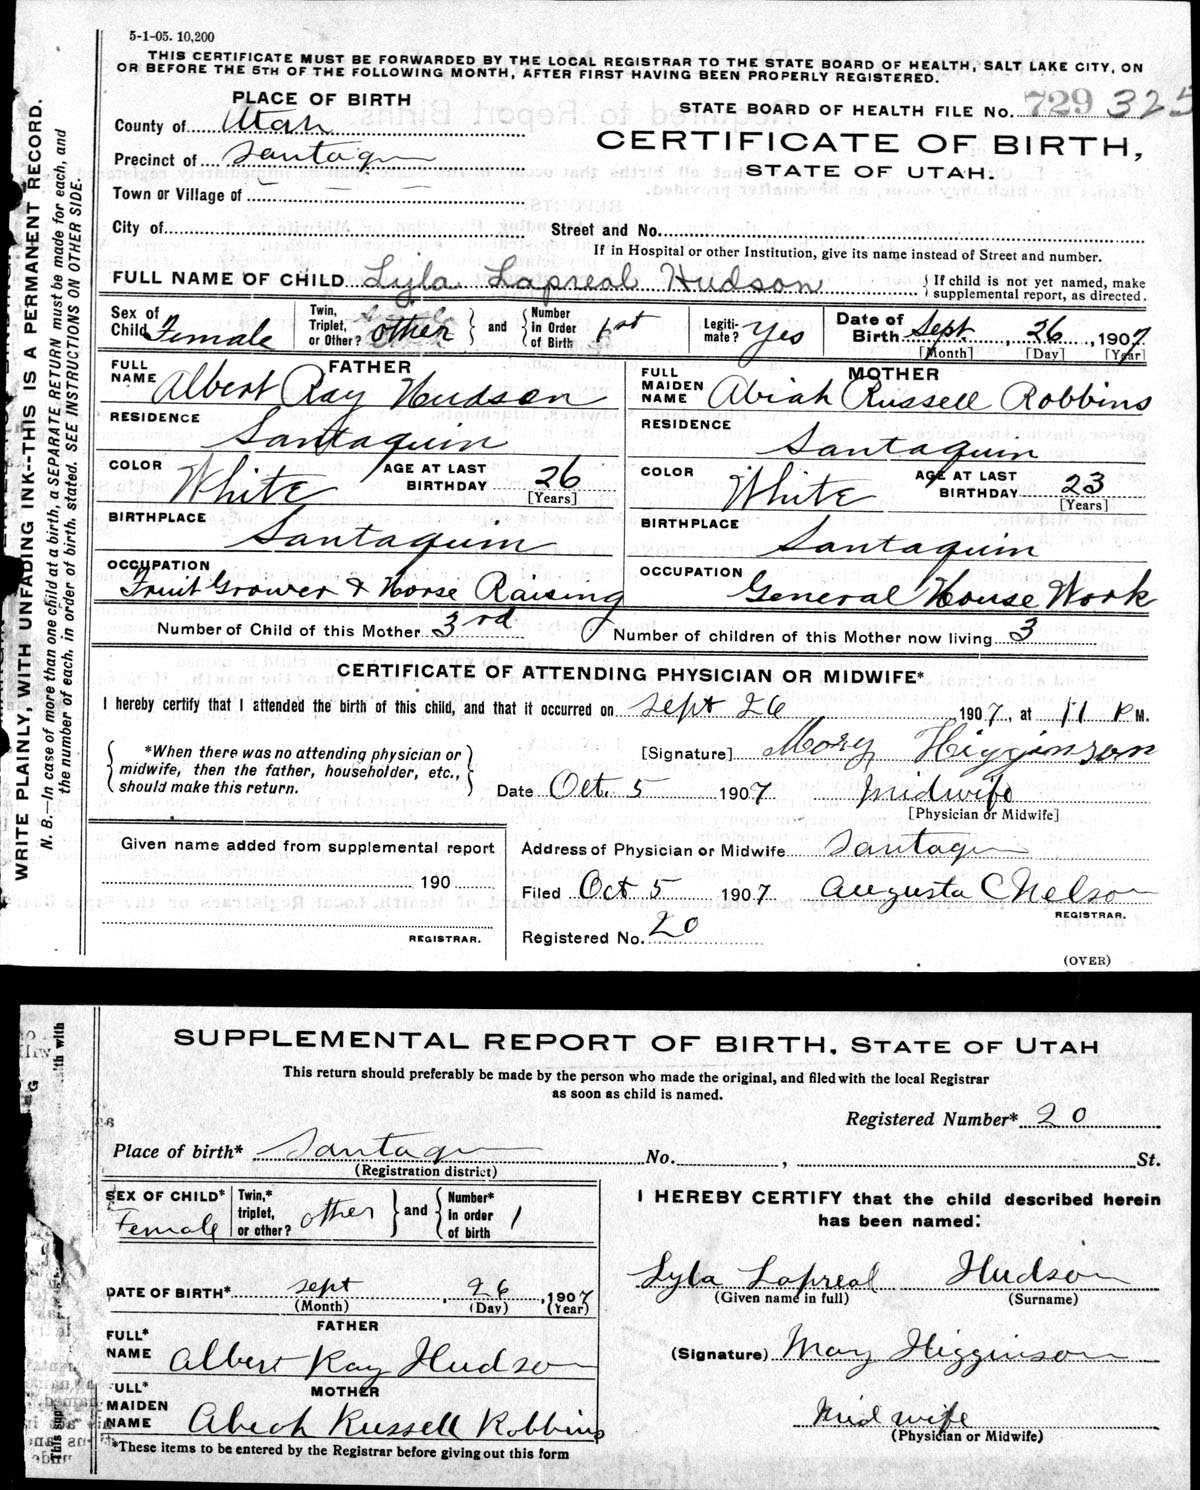 5-1-05. 10,200
THIS CERTIFICATE MUST BE FORWARDED BY THE LOCAL REGISTRAR TO THE STATE BOARD OF HEALTH, SALT LAKE CITY, ON
OR BEFORE THE 5TH OF THE FOLLOWING MONTH, AFTER FIRST HAVING BEEN PROPERLY REGISTERED.
WRITE PLAINLY, WITH UNFADING INK--THIS IS A PERMANENT RECORD.
N. B.—In case of more than one child at a birth, a SEPARATE RETURN must be made for each, and
the number of each, in order of birth, stated. SEE INSTRUCTIONS ON OTHER SIDE.
PLACE OF BIRTH
STATE BOARD OF HEALTH FILE No. 729 325
County of Utah
CERTIFICATE OF BIRTH,
Precinct of Santaquin
STATE OF UTAH.
Town or Village of — — —
City of Street and No.
If in Hospital or other Institution, give its name instead of Street and number.
FULL NAME OF CHILD Lyla Lapreal Hudson { If child is not yet named, make
supplemental report, as directed.
Sex of Child Female Twin, Triplet, or Other? other } and { Number in Order of Birth 1st Legiti-mate? Yes Date of Birth Sept. 26, 1907
[Month] [Day] [Year]
FATHER MOTHER
FULL NAME Albert Ray Hudson FULL MAIDEN NAME Abiah Russell Robbins
RESIDENCE Santaquin RESIDENCE Santaquin
COLOR White AGE AT LAST BIRTHDAY 26 [Years] COLOR White AGE AT LAST BIRTHDAY 23 [Years]
BIRTHPLACE Santaquin BIRTHPLACE Santaquin
OCCUPATION Fruit Grower & Horse Raising OCCUPATION General House Work
Number of Child of this Mother 3rd Number of children of this Mother now living 3
CERTIFICATE OF ATTENDING PHYSICIAN OR MIDWIFE*
I hereby certify that I attended the birth of this child, and that it occurred on Sept 26 1907, at 11 P M.
{ *When there was no attending physician or
midwife, then the father, householder, etc.,
should make this return. }
[Signature] Mary Higginson
Date Oct. 5 1907 Midwife
[Physician or Midwife]
Given name added from supplemental report
190
REGISTRAR.
Address of Physician or Midwife Santaquin
Filed Oct 5 1907 Augusta C Nelson
REGISTRAR.
Registered No. 20
(OVER)
SUPPLEMENTAL REPORT OF BIRTH, STATE OF UTAH
This return should preferably be made by the person who made the original, and filed with the local Registrar
as soon as child is named.
Registered Number* 20
Place of birth* Santaquin No. , St.
(Registration district)
SEX OF CHILD* Female Twin,* triplet, or other? other } and { Number* in order of birth 1
I HEREBY CERTIFY that the child described herein
has been named:
DATE OF BIRTH* Sept 26, 1907
(Month) (Day) (Year)
Lyla Lapreal Hudson
(Given name in full) (Surname)
FATHER
FULL* NAME Albert Ray Hudson
(Signature) Mary Higginson
MOTHER
FULL* MAIDEN NAME Abiah Russell Robbins
Midwife
(Physician or Midwife)
*These items to be entered by the Registrar before giving out this form